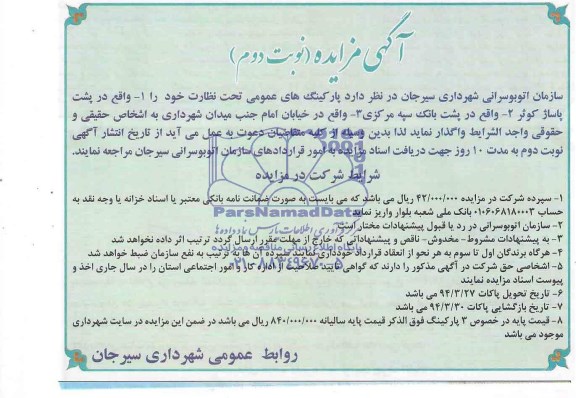 آگهی مزایده (نوبت دوم)
سازمان اتوبوسرانی شهرداری سیرجان در نظر دارد پارکینگ های عمومی تحت نظارت خود را ۱- واقع در پشت
پاساژ کوثر ۲- واقع در پشت بانک سپه مرکزی۳- واقع در خیابان امام جنب میدان شهرداری به اشخاص حقیقی و
حقوقی واجد الشرایط واگذار نماید لذا بدین وسیله از کلیه متقاضیان دعوت به عمل می آید از تاریخ انتشار آگهی
نوبت دوم به مدت ۱۰ روز جهت دریافت اسناد مزایده به امور قراردادهای سازمان اتوبوسرانی سیرجان مراجعه نمایند.
شرایط شرکت در مزایده
۱- سپرده شرکت در مزایده ۴۲/۰۰۰/۰۰۰ ریال می باشد که می بایست به صورت ضمانت نامه بانکی معتبر یا اسناد خزانه یا وجه نقد به
حساب ۰۱۰۶۰۶۸۱۸۰۰۰۲ بانک ملی شعبه بلوار واریز نماید
۲- سازمان اتوبوسرانی در رد یا قبول پیشنهادات مختار است
۳- به پیشنهادات مشروط- مخدوش- ناقص و پیشنهاداتی که خارج از مهلت مقرر ارسال گردد ترتیب اثر داده نخواهد شد
۴- هرگاه برندگان اول تا سوم به هر نحو از انعقاد قرارداد خودداری نمایند سپرده آن ها به ترتیب به نفع سازمان ضبط خواهد شد
۵- اشخاصی حق شرکت در آگهی مذکور را دارند که گواهی تایید صلاحیت از اداره کار و امور اجتماعی استان را در سال جاری اخذ و
پیوست اسناد مزایده نمایند
۶- تاریخ تحویل پاکات ۹۴/۳/۲۷ می باشد
۷- تاریخ بازگشایی پاکات ۹۴/۳/۳۰ می باشد
۸- قیمت پایه در خصوص ۳ پارکینگ فوق الذکر قیمت پایه سالیانه ۸۴۰/۰۰۰/۰۰۰ ریال می باشد در ضمن این مزایده در سایت شهرداری
موجود می باشد
روابط عمومی شهرداری سیرجان
ParsNamadData